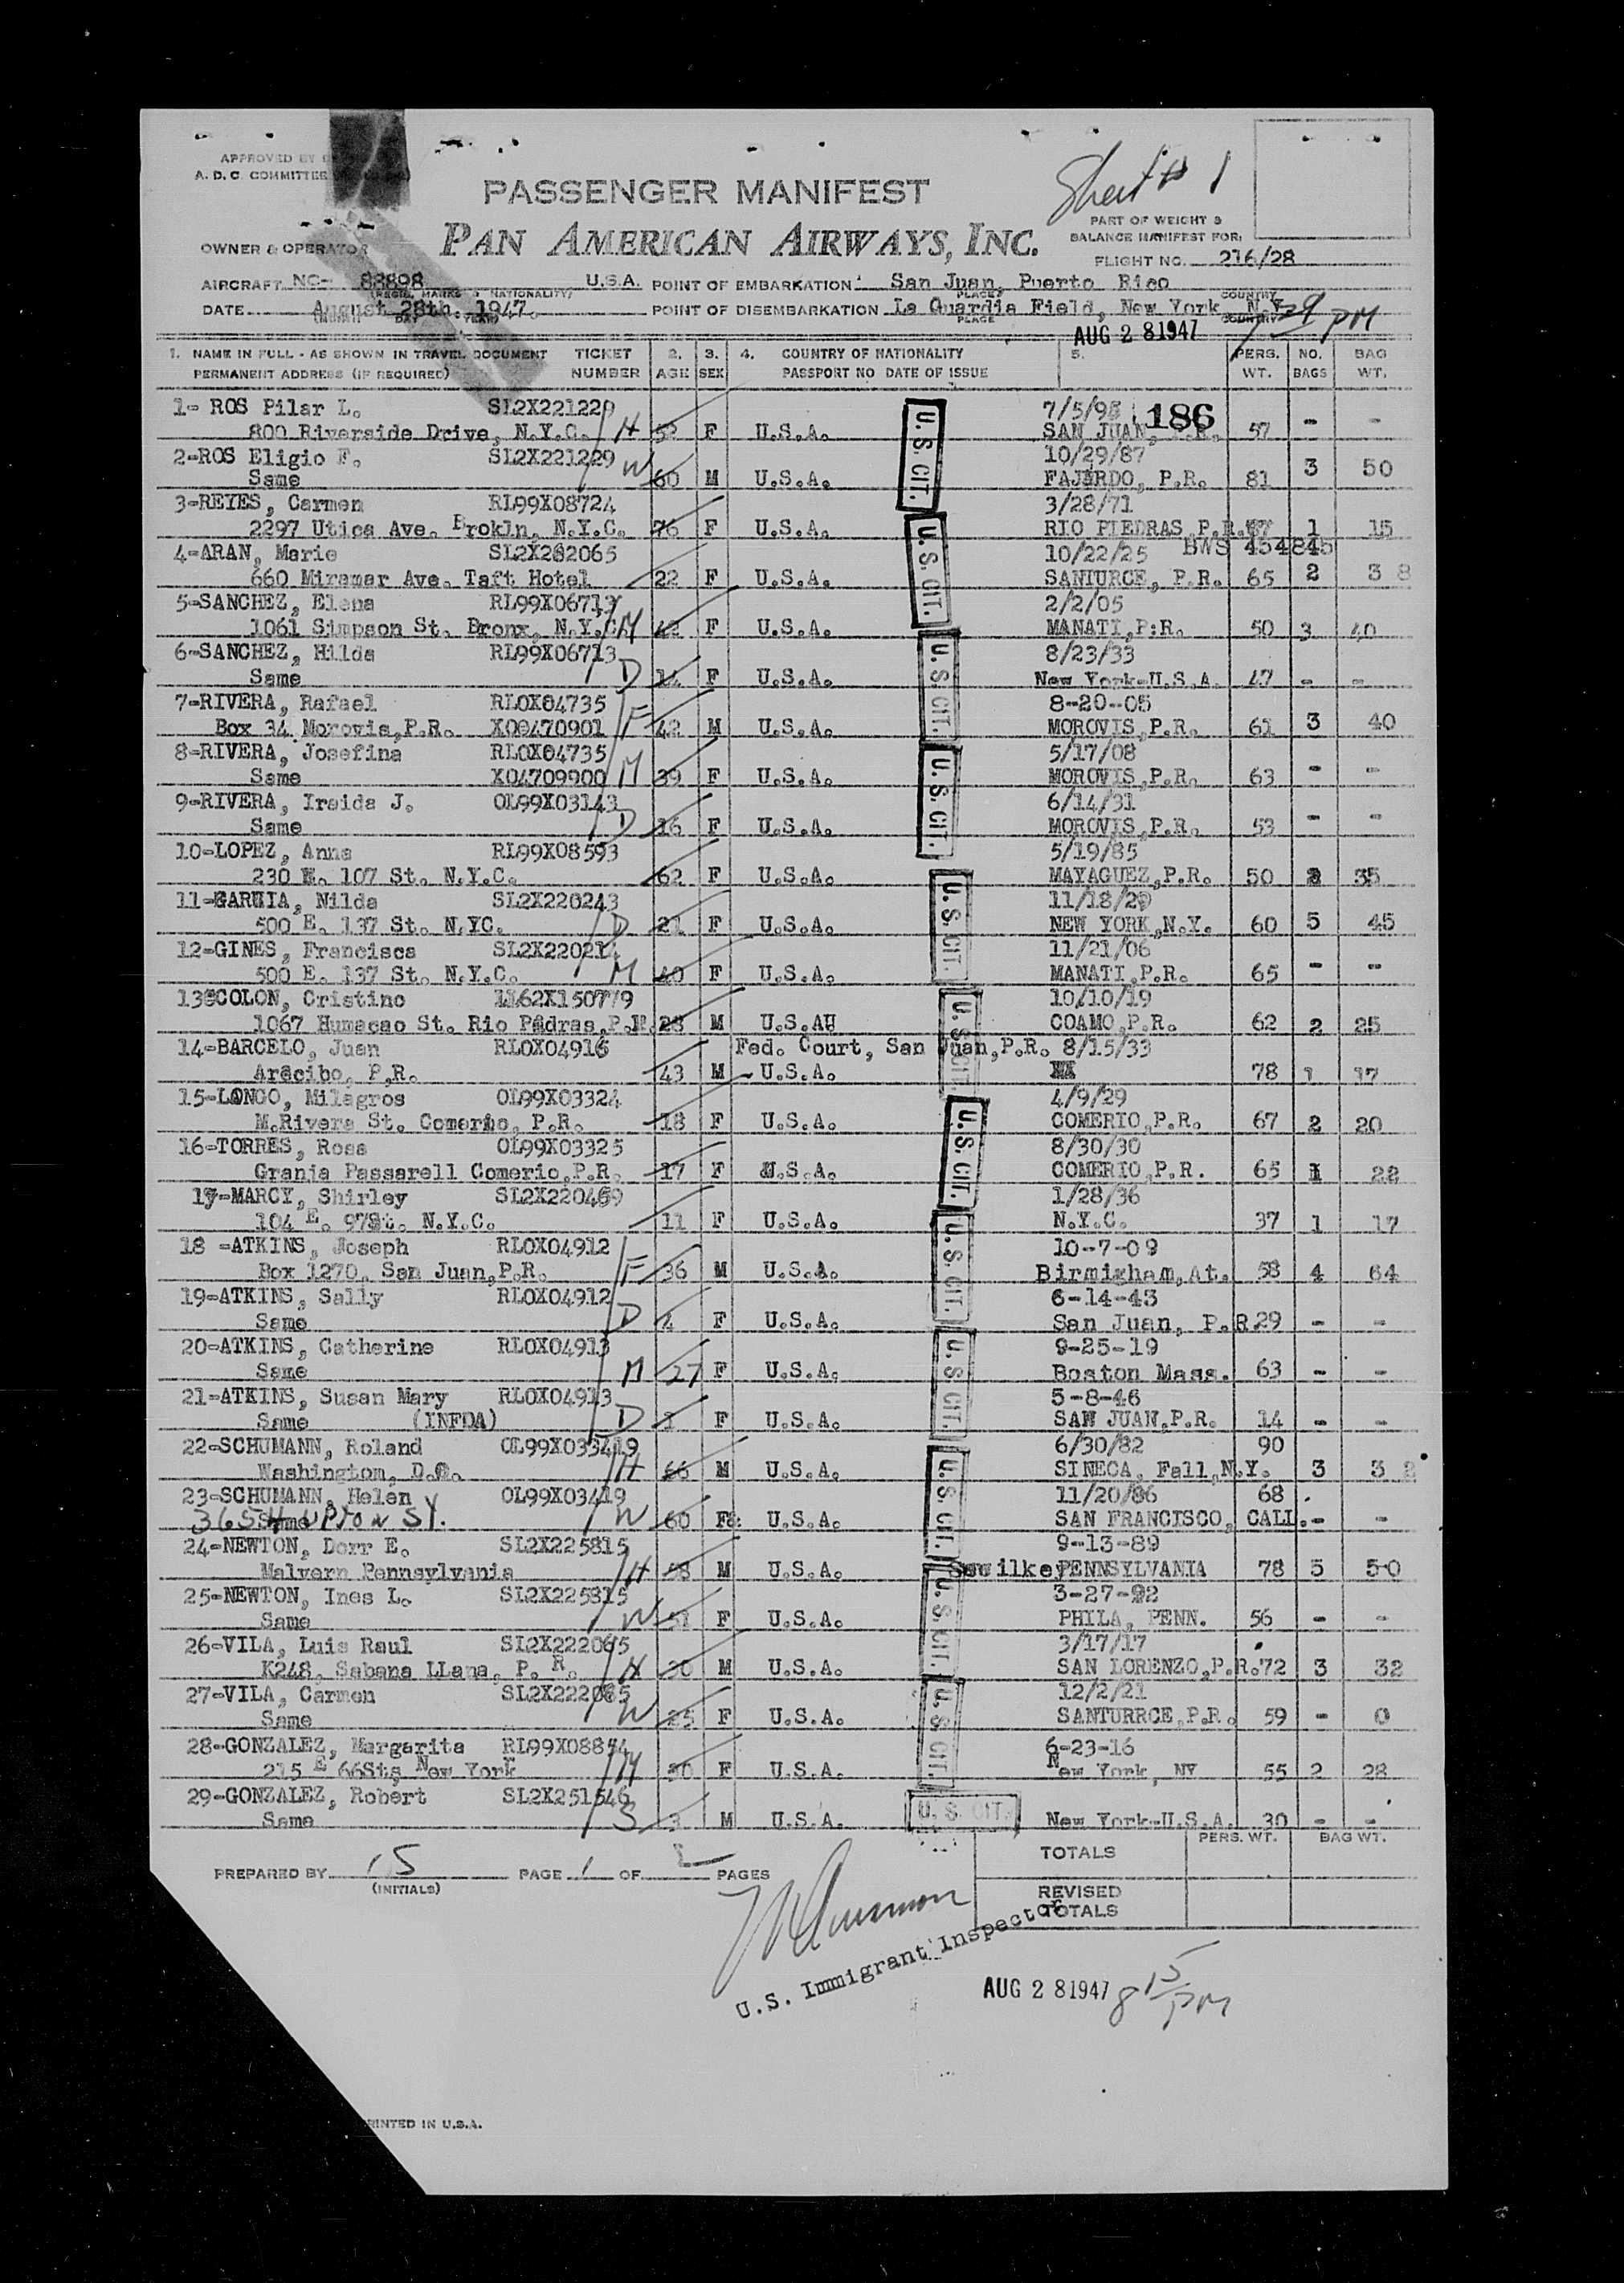 APPROVED BY
A. D. C. COMMITTEE
PASSENGER MANIFEST
Sheet # 1
PART OF WEIGHT &
BALANCE MANIFEST FOR:
OWNER & OPERATOR PAN AMERICAN AIRWAYS, INC.
FLIGHT NO. 216/28
AIRCRAFT NC- 88898 U.S.A. POINT OF EMBARKATION San Juan, Puerto Rico
(REGIS. MARKS & NATIONALITY) PLACE COUNTRY
DATE August 28th. 1947. POINT OF DISEMBARKATION La Guardia Field, New York N.Y.
(MONTH DAY YEAR) PLACE COUNTRY
AUG 2 8 1947 PM
1. NAME IN FULL - AS SHOWN IN TRAVEL DOCUMENT TICKET 2. 3. 4. COUNTRY OF NATIONALITY 5. PERS. NO. BAG
PERMANENT ADDRESS (IF REQUIRED) NUMBER AGE SEX PASSPORT NO DATE OF ISSUE WT. BAGS WT.
1- ROS Pilar L. SL2X221229 7/5/95 186
800 Riverside Drive, N.Y.C. H F U.S.A. SAN JUAN, P.R. 57 - -
2-ROS Eligio F. SL2X221229 10/29/87
Same W 60 M U.S.A. FAJARDO, P.R. 81 3 50
3-REYES, Carmen RL99X08724 3/28/71
2297 Utica Ave. Brokln, N.Y.C. 76 F U.S.A. RIO PIEDRAS,P.R. 67 1 15
4-ARAN, Marie SL2X282065 10/22/25 BWS 454845
660 Miramar Ave. Taft Hotel 22 F U.S.A. SANTURCE, P.R. 65 2 38
5-SANCHEZ, Elena RL99X06713 2/2/05
1061 Simpson St. Bronx, N.Y.C. M 42 F U.S.A. MANATI,P:R. 50 3 40
6-SANCHEZ, Hilda RL99X06713 8/23/33
Same D 14 F U.S.A. New York-U.S.A. 47 - -
7-RIVERA, Rafael RLOX04735 8-20-05
Box 34 Morovis,P.R. X00470901 F 42 M U.S.A. MOROVIS,P.R. 61 3 40
8-RIVERA, Josefina RLOX04735 5/17/08
Same X04709900 M 39 F U.S.A. MOROVIS,P.R. 63 - -
9-RIVERA, Iraida J. OL99X03143 6/14/31
Same D 16 F U.S.A. MOROVIS,P.R. 53 - -
10-LOPEZ, Anna RL99X08593 5/19/85
230 E. 107 St. N.Y.C. 62 F U.S.A. MAYAGUEZ,P.R. 50 35
11-GARCIA, Nilda SL2X220243 11/18/2
500 E. 137 St. N.YC. D 21 F U.S.A. NEW YORK,N.Y. 60 5 45
12-GINES, Francisca SL2X220214 11/21/06
500 E. 137 St. N.Y.C. M 40 F U.S.A. MANATI,P.R. 65 - -
13-COLON, Cristino 1162X150779 10/10/19
1067 Humacao St. Rio Pedras,P.R. 28 M U.S.AU COAMO,P.R. 62 2 25
14-BARCELO, Juan RLOX04916 Fed. Court, San Juan,P.R. 8/15/33
Arecibo, P.R. 43 M U.S.A. XX 78 1 17
15-LONGO, Milagros OL99X03324 4/9/29
M.Rivera St. Comerio, P.R. 18 F U.S.A. COMERIO,P.R. 67 2 20
16-TORRES, Rosa OL99X03325 8/30/30
Granja Passarell Comerio,P.R. 17 F U.S.A. COMERIO,P.R. 65 1 22
17-MARCY, Shirley SL2X220469 1/28/36
104 E. 97St. N.Y.C. 11 F U.S.A. N.Y.C. 37 1 17
18 -ATKINS, Joseph RLOX04912 10-7-09
Box 1270, San Juan,P.R. F 36 M U.S.A. Birmigham,At. 58 4 64
19-ATKINS, Sally RLOX04912 6-14-43
Same D 4 F U.S.A. San Juan, P.R 29 - -
20-ATKINS, Catherine RLOX04913 9-25-19
Same M 27 F U.S.A. Boston Mass. 63 - -
21-ATKINS, Susan Mary RLOX04913 5-8-46
Same (INFDA) D 1 F U.S.A. SAN JUAN,P.R. 14 - -
22-SCHUMANN, Roland OL99X033419 6/30/82 90
Washington, D.C. H 66 M U.S.A. SINECA, Fall,N.Y. 3 32
23-SCHUMANN, Helen OL99X03419 11/20/86 68
3654 UPTON ST. Same W 60 F U.S.A. SAN FRANCISCO, CALI.- -
24-NEWTON, Dorr E. SL2X225815 9-13-89
Malvern Pennsylvania H 58 M U.S.A. Sewilkey PENNSYLVANIA 78 5 50
25-NEWTON, Ines L. SL2X225815 3-27-92
Same W 51 F U.S.A. PHILA, PENN. 56 - -
26-VILA, Luis Raul SL2X222065 3/17/17
K248, Sabana LLana, P. R. H 30 M U.S.A. SAN LORENZO,P.R. 72 3 32
27-VILA, Carmen SL2X222065 12/2/21
Same W 25 F U.S.A. SANTURRCE,P.R. 59 - 0
28-GONZALEZ, Margarita RL99X08854 6-23-16
215 E 66Sts New York M 30 F U.S.A. New York, NY 55 2 28
29-GONZALEZ, Robert SL2X251546
Same S 3 M U.S.A. New York-U.S.A. 30 - -
U. S. CIT.
U. S. CIT.
U. S. CIT.
U. S. CIT.
U. S. CIT.
U. S. CIT.
U. S. CIT.
U. S. CIT.
U. S. CIT.
U. S. CIT.
U. S. CIT.
U. S. CIT.
U. S. CIT.
PERS. WT. BAG WT.
TOTALS
PREPARED BY PAGE 1 OF 2 PAGES
(INITIALS)
REVISED
TOTALS
U.S. Immigrant Inspector
AUG 2 8 1947 8 15 PM
PRINTED IN U.S.A.